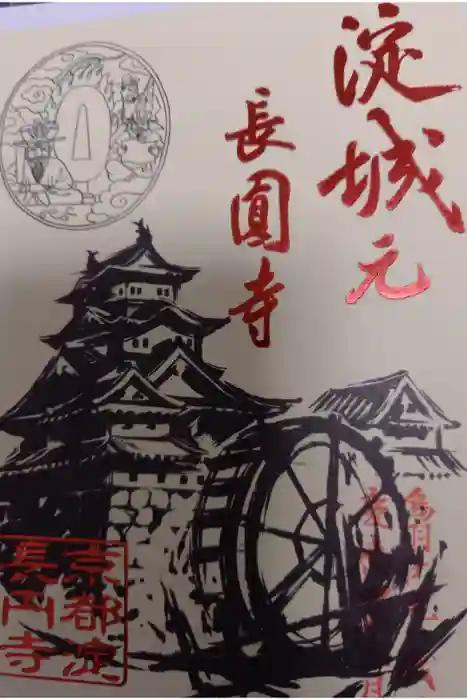 淀城元
長圓寺
京都淀
長円寺